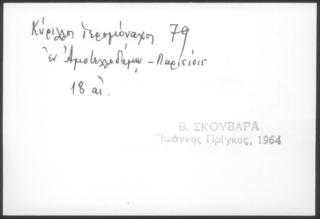 Κύριλλος Ιερομόναχος 79
ἐν Ἀμστελλοδάμῳ - Παρισίοις
18 αἰ.
Β. ΣΚΟΥΒΑΡΑ
Ἰωάννης Πρίγκος, 1964